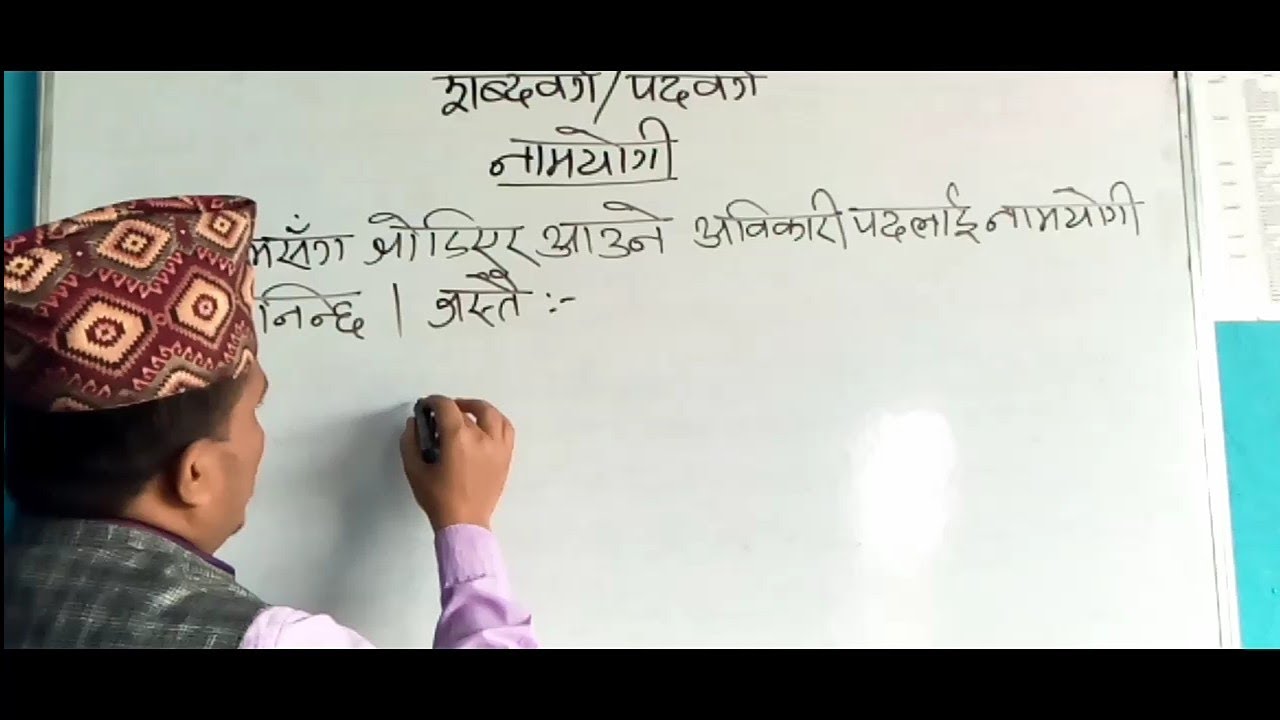 शब्दवर्ग/पदवर्ग
नामयोगी
मसँग जोडिएर आउने अविकारी पदलाई नामयोगी
निन्छ । जस्तै :-